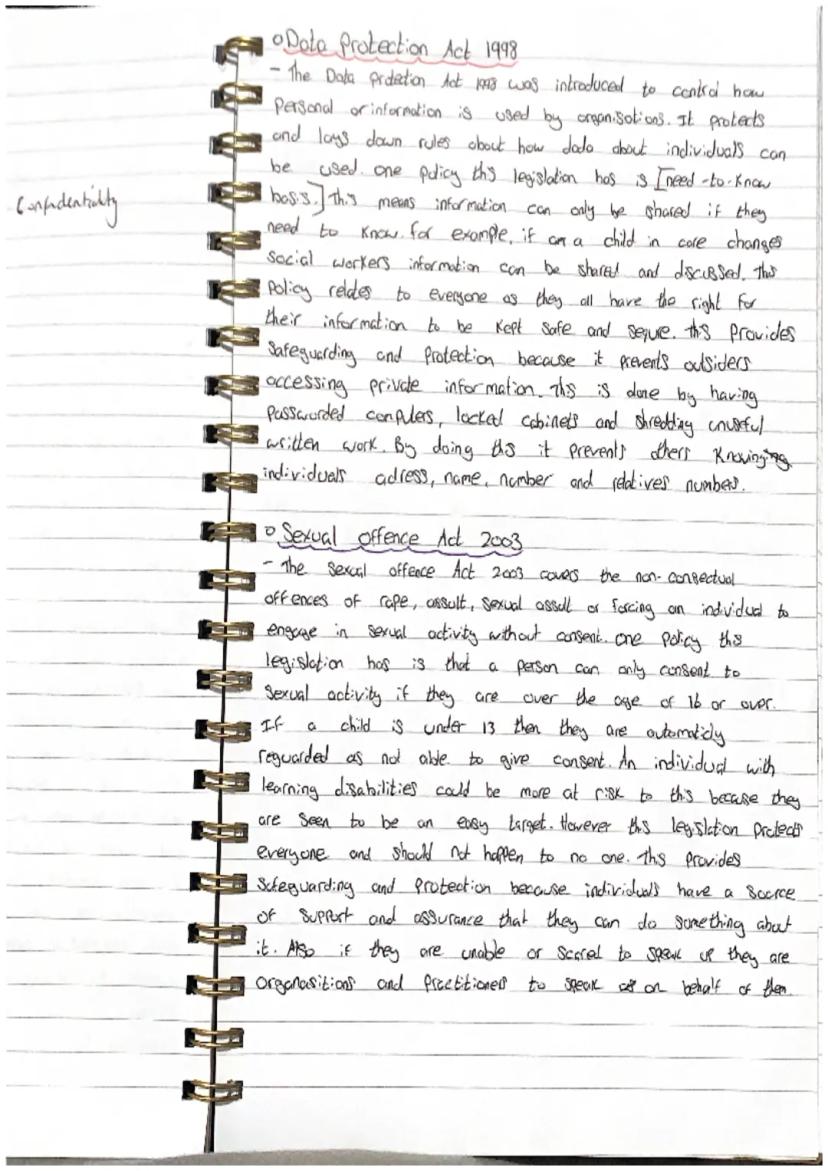 Data Protection Act 1998
- The Data protection Act 1998 was introduced to control how
personal or information is used by organisations. It protects
and lays down rules about how data about individuals can
be used. one policy this legislation has is [need-to-know
Confidentiality
basis.] This means information can only be shared if they
need to know. for example, if on a child in care changes
social workers information can be shared and discussed. This
policy relates to everyone as they all have the right for
their information to be kept safe and sequre. this provides
safeguarding and protection because it prevents outsiders
accessing private information. This is done by having
passworded computers, locked cabinets and shredding unuseful
written work. By doing this it prevents others knowing
individuals adress, name, number and relatives numbers.
Sexual offence Act 2003
- The sexual offence Act 2003 covers the non-consectual
offences of rape, assult, sexual assult or forcing an individual to
engage in sexual activity without consent. one policy this
legislation has is that a person can only consent to
sexual activity if they are over the age of 16 or over.
If a child is under 13 then they are automaticly
reguarded as not able to give consent. An individual with
learning disabilities could be more at risk to this because they
are seen to be an easy target. However this legislation protects
everyone and should not happen to no one. This provides
safeguarding and protection because individuals have a source
of support and assurance that they can do something about
it. Also if they are unable or scared to speak up they are
organasitions and practitioners to speak on behalf of them.